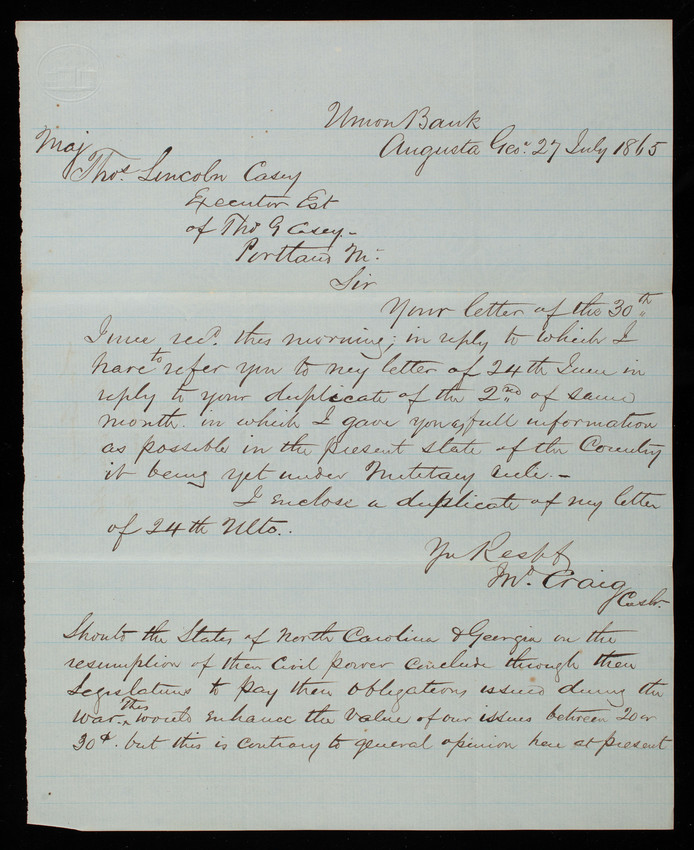 Union Bank
Augusta Geo. 27 July 1865
Maj
Thos. Lincoln Casey
Executor Est
of Tho G Casey -
Portland M.
Sir
Your letter of the 30th
June recd. this morning; in reply to which I
have to refer you to my letter of 24th June in
reply to your duplicate of the 2nd of same
month. in which I gave you full information
as possible in the present state of the Country
it being yet under Military rule. -
I enclose a duplicate of my letter
of 24th Ulto..
Yr Respy
Jno. Craig
Cashr.
Should the States of North Carolina & Georgia on the
resumption of their Civil power conclude through their
Legislatures to pay their obligations issued during the
war. This would enhance the value of our issues between 20 or
30 but this is contrary to general opinion here at present